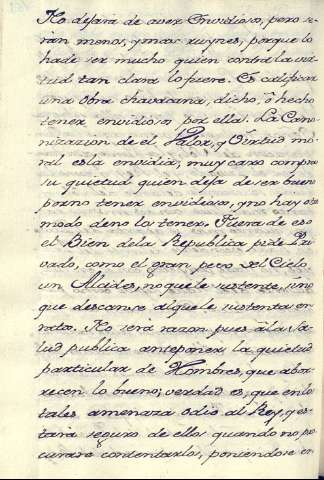 No dejara de aver Invidioso, pero se-
ran menos, y mas ruynes, porque lo
hade ser mucho quien contra la vir-
tud tan clara lo fuere. Es calificar
una obra chavacana, dicho, ô hecho
tener envidiosos por ella. La Cano-
nizazion de el Valor, y Virtud mo-
ral es la envidia, muy caro compra
su quietud quien deja de ser bueno
por no tener envidiosos, y no hay otro
modo de no los tener. Fuera de eso
el Bien dela Republica pide Pri-
vado, como el gran peso del Cielo
un Alcides, no que le sustente, sino
que descanse al que le sustenta un
rato. No será razon pues â la sa-
lud publica anteponer la quietud
particular de Hombres, que abor-
recen lo bueno; verdad es, que en los
tales amenaza odio al Rey, y es-
tará seguro de ellos quando no pro-
curare contentarlos, poniendose en